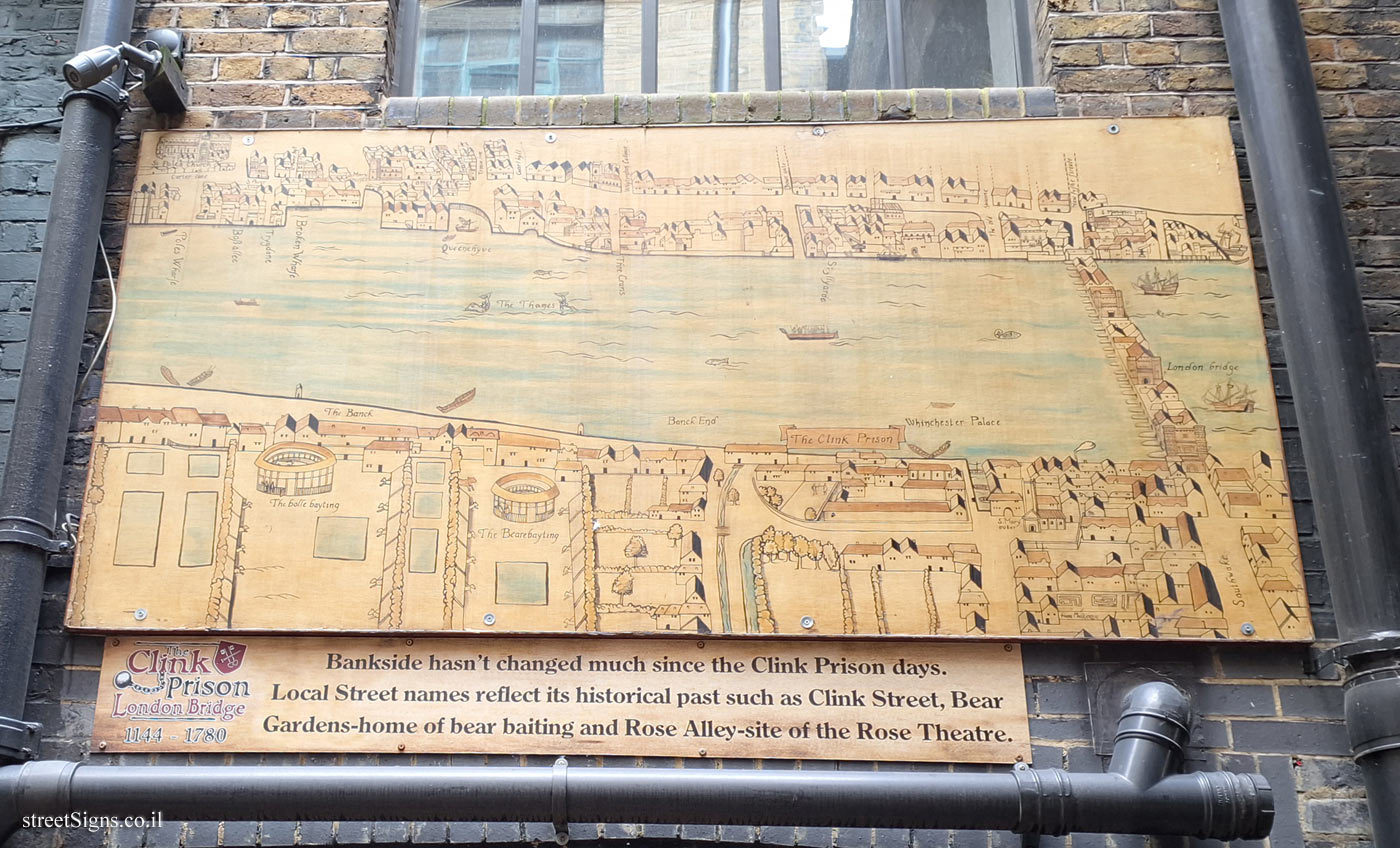 Carter lane
Poles Wharfe
Bossallee
Trygdine
Broken Wharfe
Queenehyue
Thre Crans
The Thames
London bridge
The Banck
Banck End
Whinchester Palace
The Clink Prison
The bolle bayting
The Bearebayting
S. Mary
Southwarke
The
Clink
Prison
London Bridge
1144 - 1780
Bankside hasn't changed much since the Clink Prison days.
Local Street names reflect its historical past such as Clink Street, Bear
Gardens-home of bear baiting and Rose Alley-site of the Rose Theatre.
streetSigns.co.il